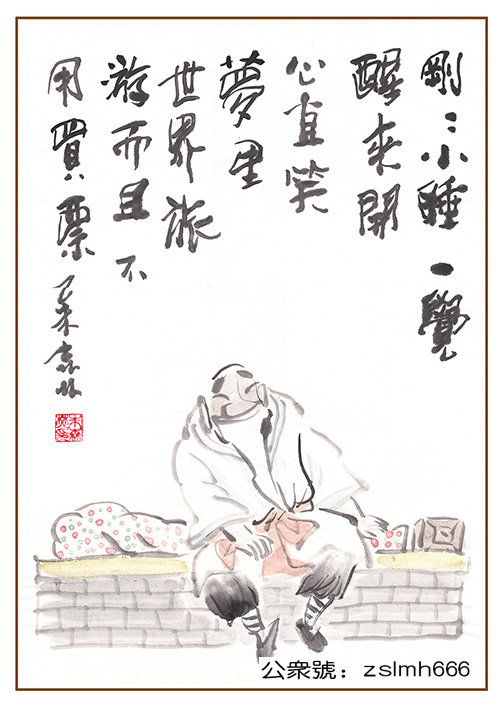 剛：小睡一覺
醒来開
心直笑
夢里
世界旅
游而且不
用買票
朱森林
公眾號：zslmh666